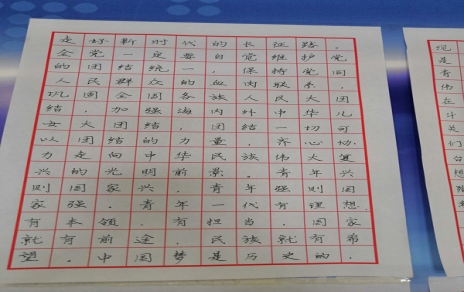 走好新时代的长征路，
全党一定要自觉维护党
的团结统一，保持党同
人民群众的血肉联系，
巩固全国各族人民大团
结，加强海内外中华儿
女大团结，团结一切可
以团结的力量，齐心协
力走向中华民族伟大复
兴的光明前景。青年兴
则国家兴，青年强则国
家强。青年一代有理想、
有本领、有担当，国家
就有前途，民族就有希
望。中国梦是历史的、
现
是
青
伟
在
斗
关
们